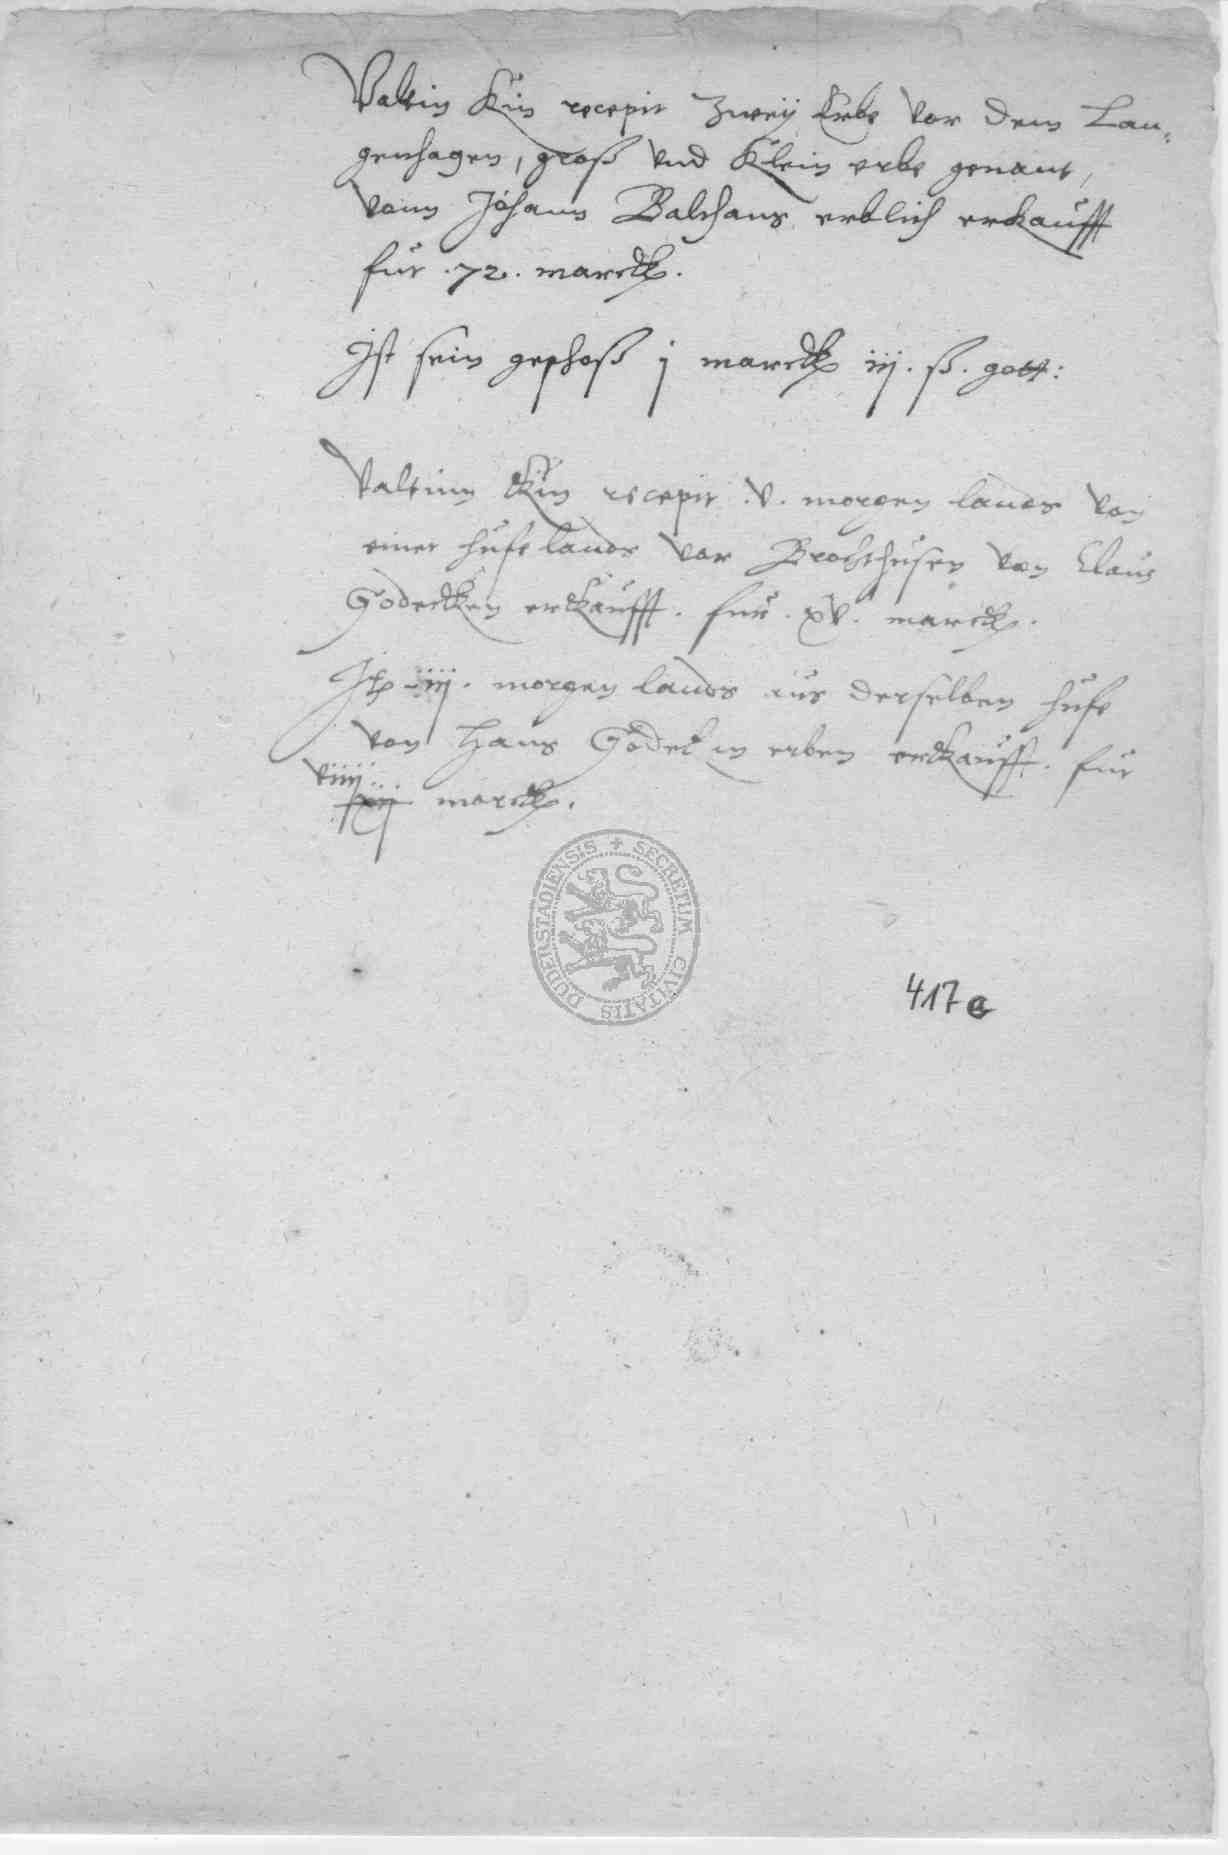 Valtin Kin recepit zweÿ Erbe vor dem Lan,
genhagen, groß vnd Klein erbe genant,
vonn Johann Balthans erblich erkaufft
fur .72. marck.
Ist sein geschoß j marck iij. ß. gott:
Valtinn Kin recepit .v. morgen lands von
einer hufe lands vor Brochthusen von Claus
Godecken erkaufft. fur .xv. marck.
It iiij. morgen lands aus derselben hufe
von Hans Godek in erben erkaufft. fur
viiij
xij marck.
SECRETUM CIVITATIS DUDERSTADIENSIS
417a